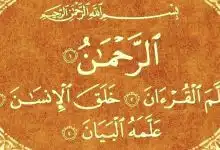 بِسْمِ اللَّهِ الرَّحْمَٰنِ الرَّحِيمِ
ٱلرَّحْمَـٰنُ ١
عَلَّمَ ٱلْقُرْءَانَ ٢ خَلَقَ ٱلْإِنسَـٰنَ ٣
عَلَّمَهُ ٱلْبَيَانَ ٤